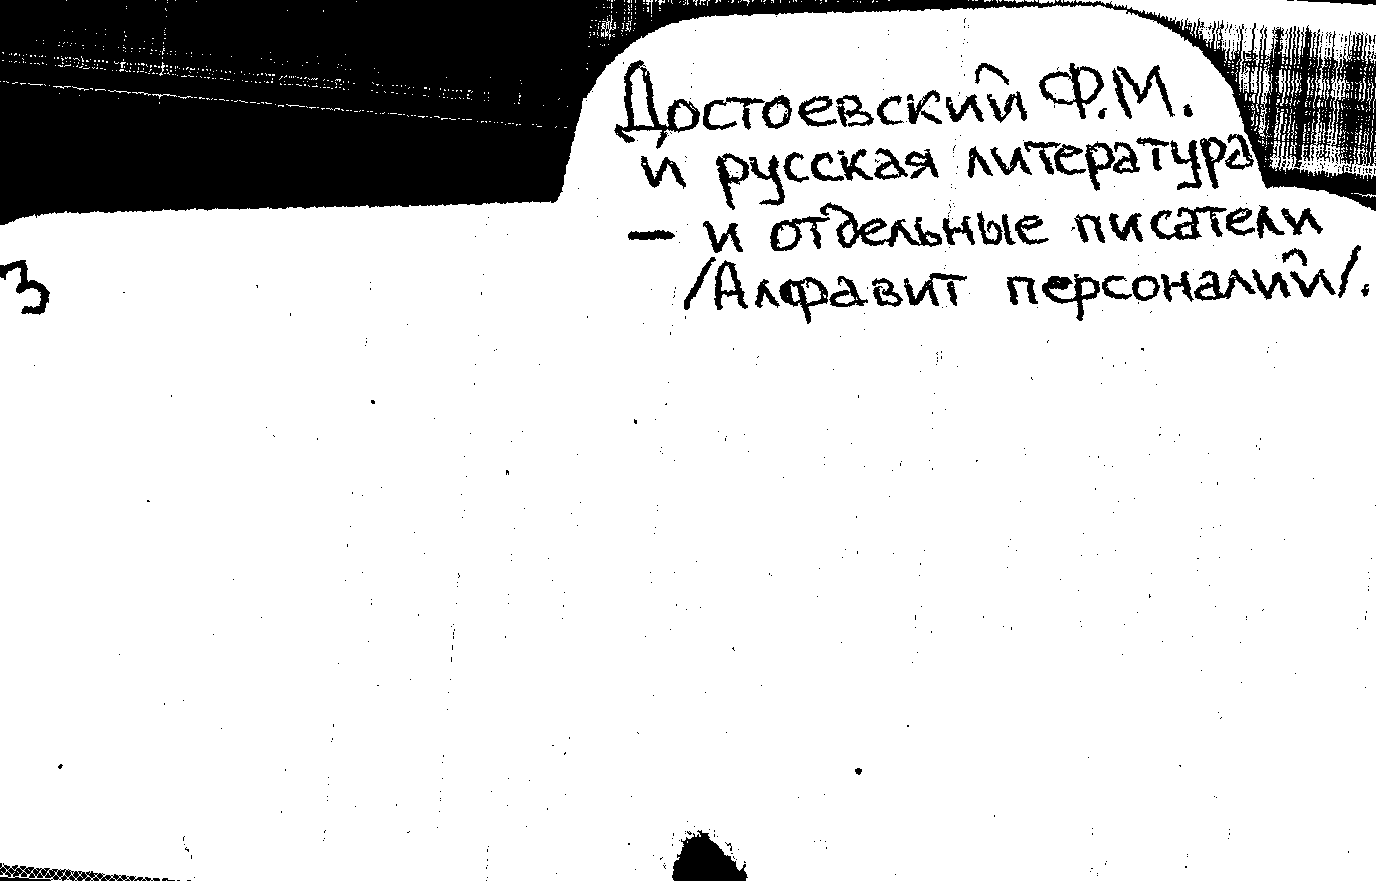 Достоевский Ф.М.
и русская литература
— и отдельные писатели
/Алфавит персоналий/.
3